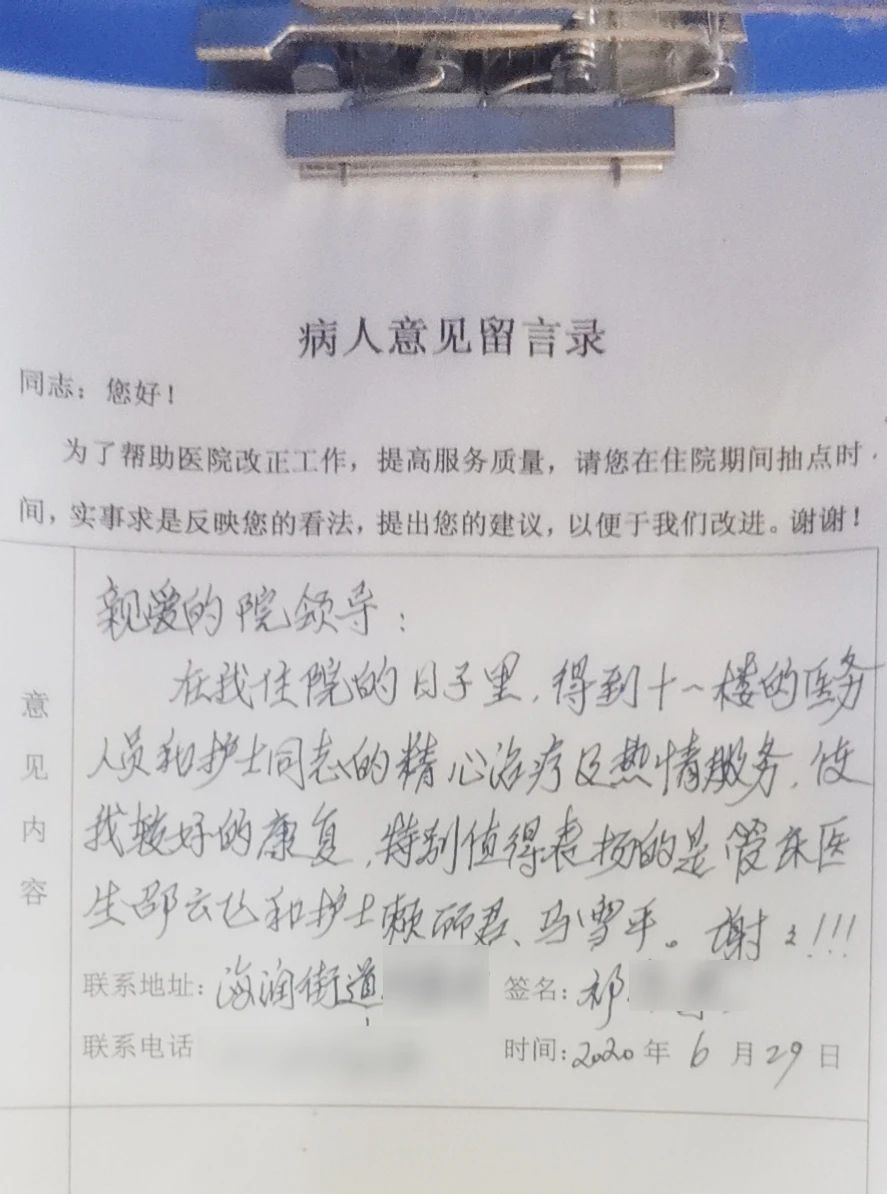 病人意见留言录
同志：您好！
为了帮助医院改正工作，提高服务质量，请您在住院期间抽点时
间，实事求是反映您的看法，提出您的建议，以便于我们改进。谢谢！
意见内容
亲爱的院领导：
在我住院的日子里，得到十一楼的医务
人员和护士同志的精心治疗及热情服务，使
我较好的康复，特别值得表扬的是管床医
生邵云飞和护士赖丽君、马雪平。谢々!!!
联系地址：海润街道 签名：祁
联系电话 时间：2020年6月29日